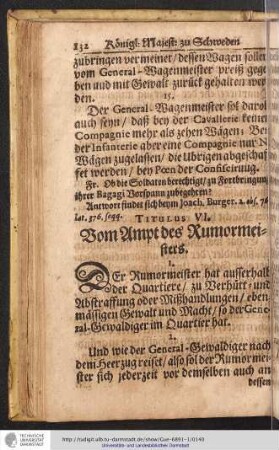 132 Königl: Majest: zu Schweden
zubringen vermeinet/ dessen Wagen sollen
vom General-Wagenmeister preiß gege
ben und mit Gewalt zurück gehalten wer
den.
15.
Der General-Wagenmeister sol darob
auch seyn/ daß bey der Cavallerie keiner
Compagnie mehr als zehen Wägen/ Bei
der Infanterie aber eine Compagnie nur N
Wägen zugelassen/ die Ubrigen abgeschaf
fet werden/ bey Pœn der Confiscirung.
Fr. Ob die Soldaten berechtigt/ zu Fortbringung
ihrer Bagagi Vorspann zubegehren?
Antwort findet sich beym Joach. Burger. 2. obs. 76
lat. 576. seqq.
TITULUS VI.
Vom Ampt des Rumormei-
sters.
1.
DEr Rumormeister hat ausserhalb
der Quartiere/ zu Verhüt- und
Abstraffung oder Mißhandlungen/ eben
mässigen Gewalt und Macht/ so der Gene
ral-Gewaldiger im Quartier hat.
2.
Und wie der General-Gewaldiger nach
dem Heerzug reiset/ also sol der Rumorme
ster sich jederzeit vor demselben auch an
dessen
TECHNISCHE UNIVERSITÄT DARMSTADT
http://tudigit.ulb.tu-darmstadt.de/show/Gue-6891-1/0140
Universitäts- und Landesbibliothek Darmstadt